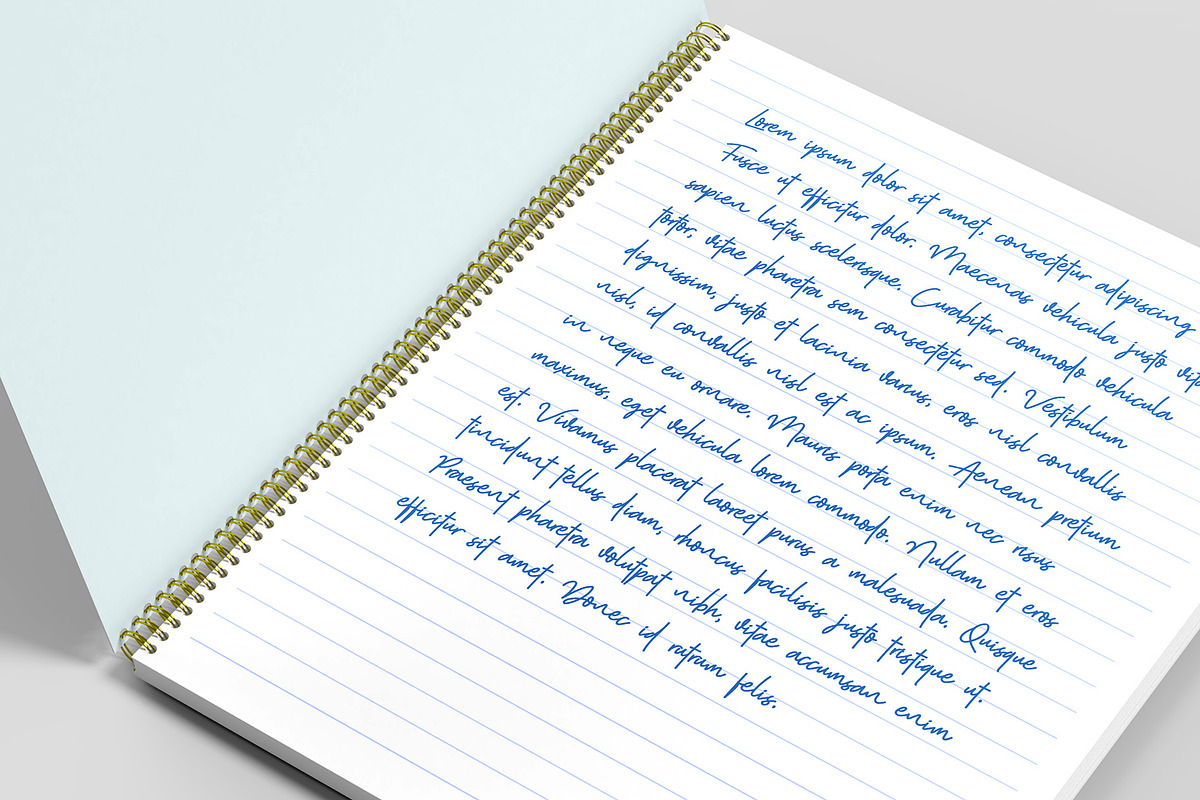 Lorem ipsum dolor sit amet, consectetur adipiscing
Fusce ut efficitur dolor. Maecenas vehicula justo
sapien luctus scelerisque. Curabitur commodo vehicula
tortor, vitae pharetra sem consectetur sed. Vestibulum
dignissim, justo et lacinia varius, eros nisl convallis
nisl, id convallis nisl est ac ipsum. Aenean pretium
in neque eu ornare. Mauris porta enim nec risus
maximus, eget vehicula lorem commodo. Nullam et eros
est. Vivamus placerat laoreet purus a malesuada. Quisque
tincidunt tellus diam, rhoncus facilisis justo tristique ut.
Praesent pharetra volutpat nibh, vitae accumsan enim
efficitur sit amet. Donec id rutrum felis.